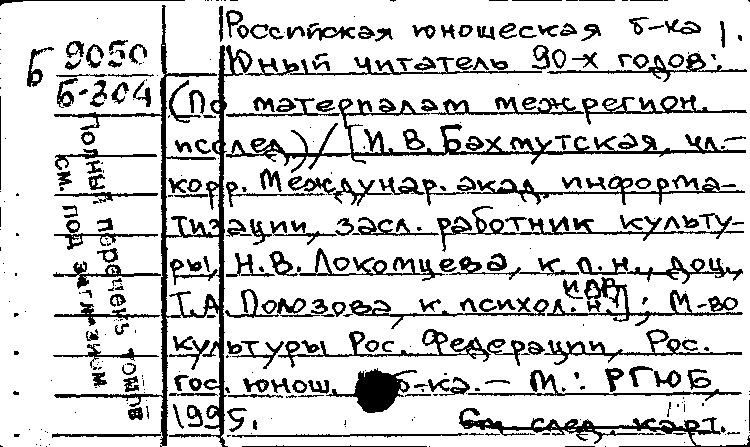 Российская юношеская б-ка
Б 9050
Юный читатель 90-х годов:
Б-304
(По материалам межрегион.
исслед.) / [И. В. Бахмутская, чл.-
корр. Междунар. акад. информа-
тизации, засл. работник культу-
ры, Н. В. Локомцева, к. п. н., доц.,
и др.
Т. А. Полозова, к. психол. н.]; М-во
культуры Рос. Федерации, Рос.
гос. юнош. б-ка. - М.: РГЮБ,
1995.
См. след. карт.
Полный перечень томов
см. под заглавием